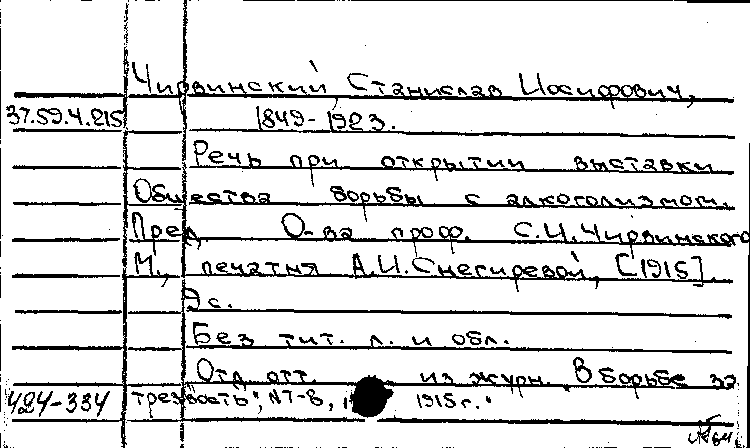 Чирвинский, Станислав Иосифович,
37.59.4.215 1849-1923.
Речь при открытии выставки
Общества борьбы с алкоголизмом.
Пред. О-ва проф. С.И.Чирвинского
М., печатня А.И.Снегиревой, [1915]
9 с.
Без тит. л. и обл.
Отд. отт. из журн. "В борьбе за
424-334 трезвость", №7-8, 1915г.